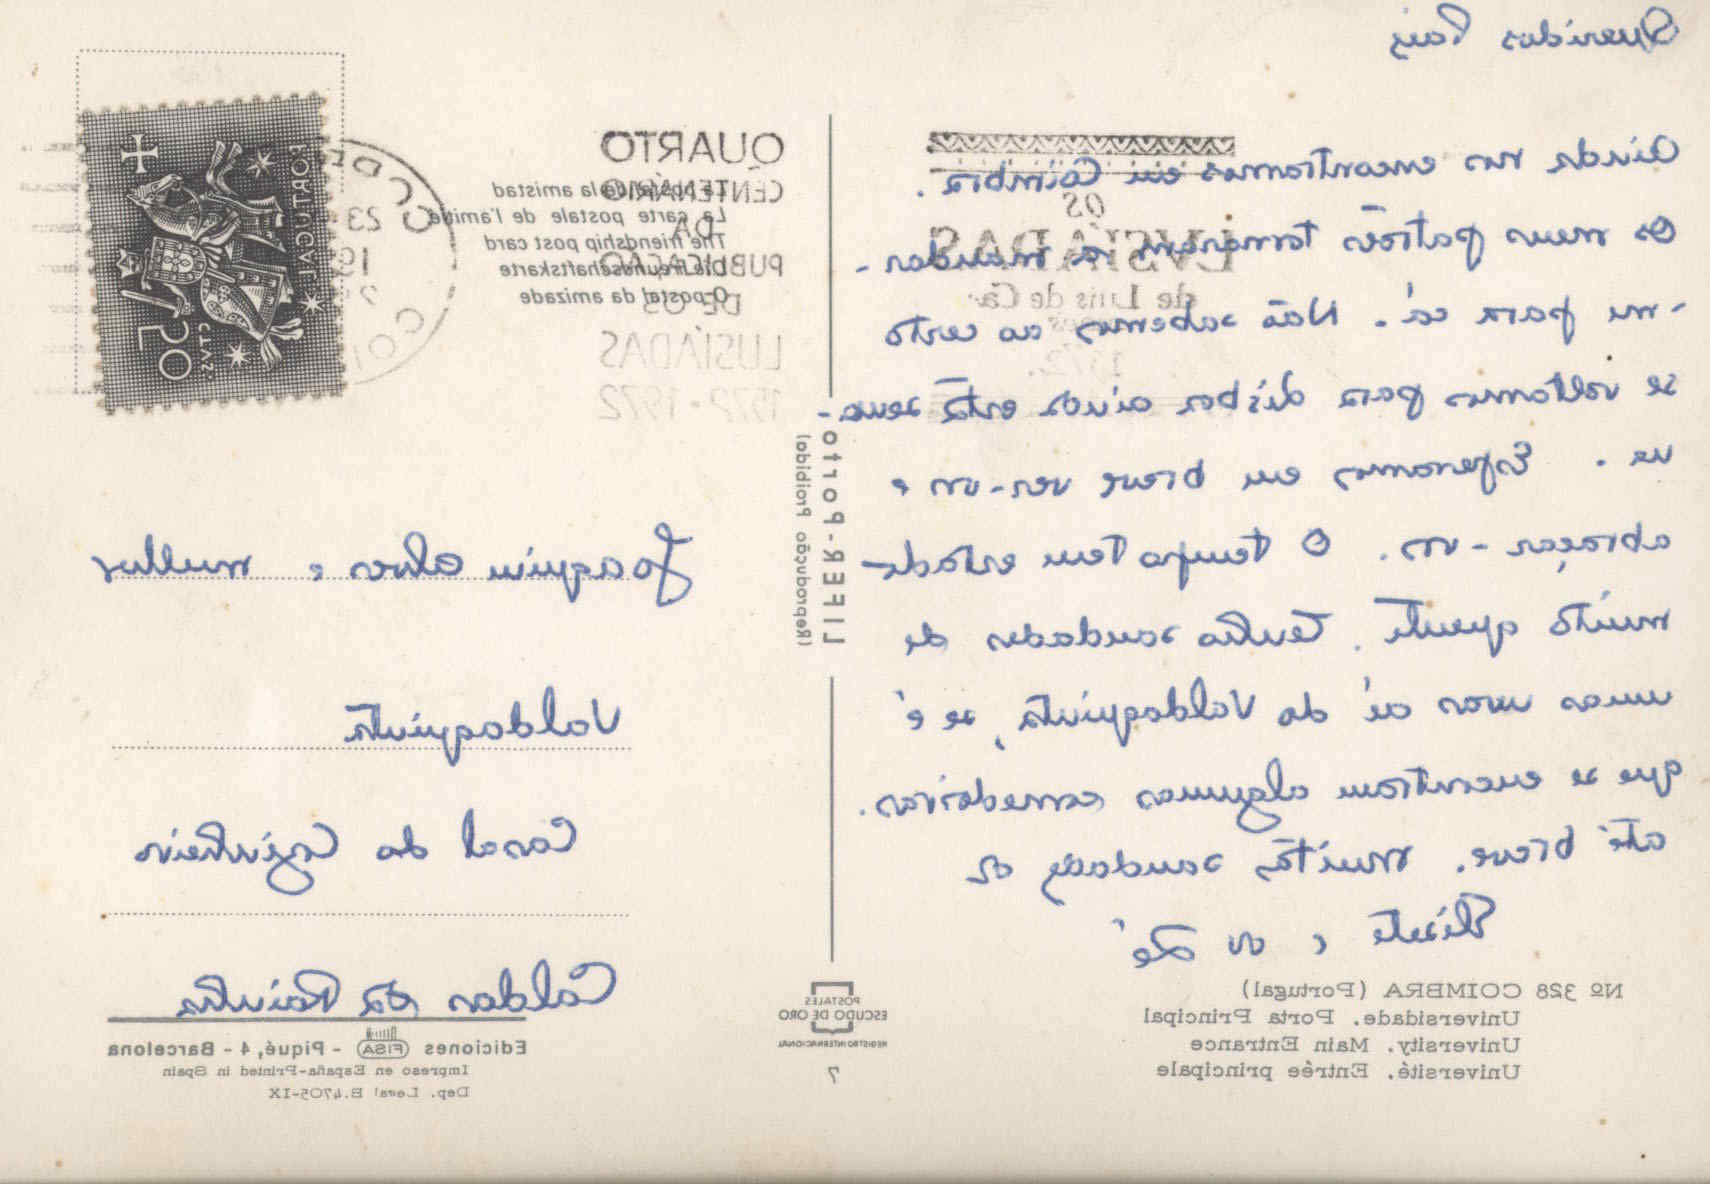 Queridos Pais
Ainda nos encontramos em Coimbra.
Os meus patrões tornaram a mandar-
-me para cá. Não sabemos ao certo
se voltamos para Lisboa ainda esta sema-
na. Esperamos em breve ver-vos e
abraçar-vos. O tempo tem estado
muito quente. Tenho saudades de
umas uvas aí do Valdaquinta, se é
que se encontram algumas comedoiras.
até breve. muitas saudades da
e do Zé
QUARTO
CENTENÁRIO
DA
PUBLICAÇÃO
DE OS
LUSÍADAS
1572-1972
OS
LVSIADAS
de Luis de Ca-
1572.
La postal de la amistad
La carte postale de l'amitié
The friendship post card
Die Freundschaftskarte
O postal da amizade
PORTUGAL
CTVS.
50
23
Joaquim Alves e mulher
Valdaquinta
Casal do
Caldas da Rainha
LIFER-Porto
(Reprodução Proibida)
Nº 328 COIMBRA (Portugal)
Universidade. Porta Principal
University. Main Entrance
Université. Entrée principale
POSTALES
ESCUDO DE ORO
REGISTRO INTERNACIONAL
7
Ediciones FISA - Piqué, 4 - Barcelona
Impreso en España-Printed in Spain
Dep. Legal B.4705-IX